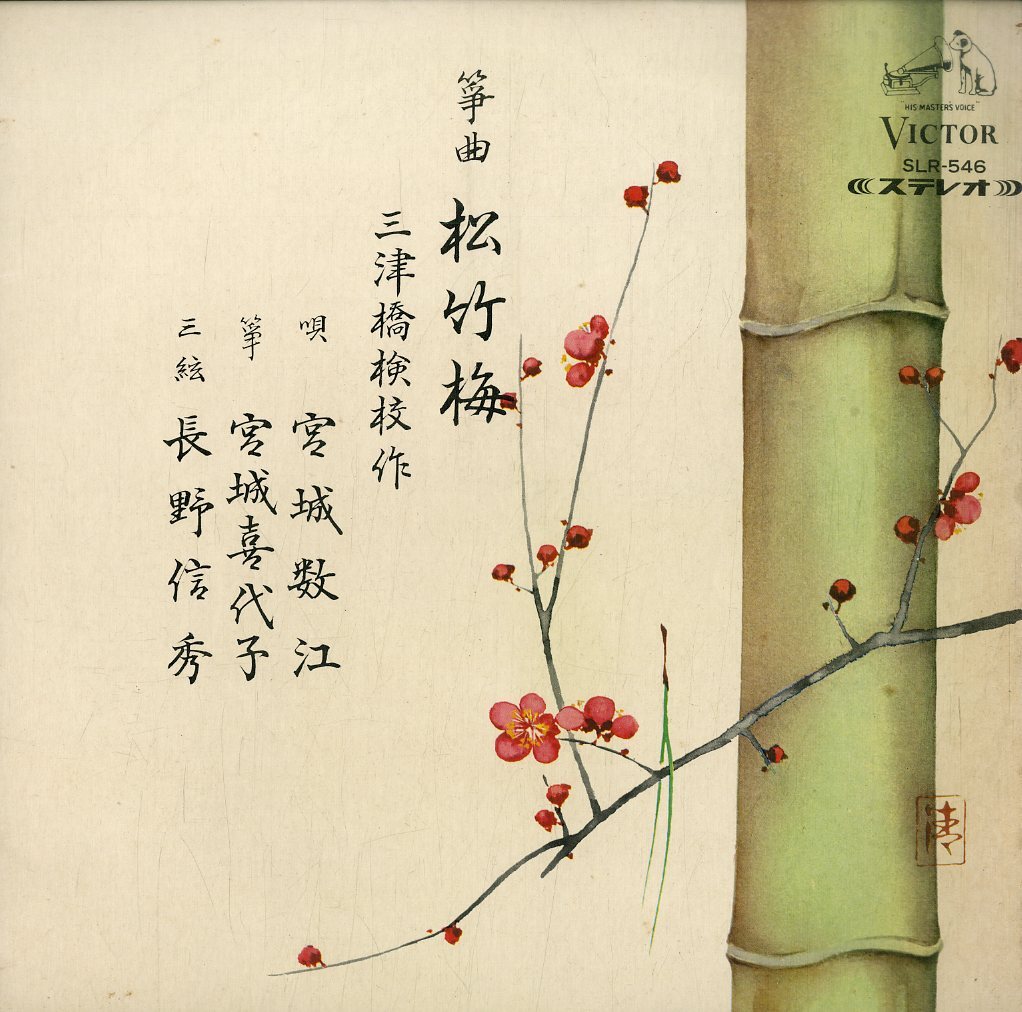 箏曲
松竹梅
三津橋検校作
唄 宮城数江
箏 宮城喜代子
三絃 長野信秀
"HIS MASTER'S VOICE"
VICTOR
SLR-546
ステレオ